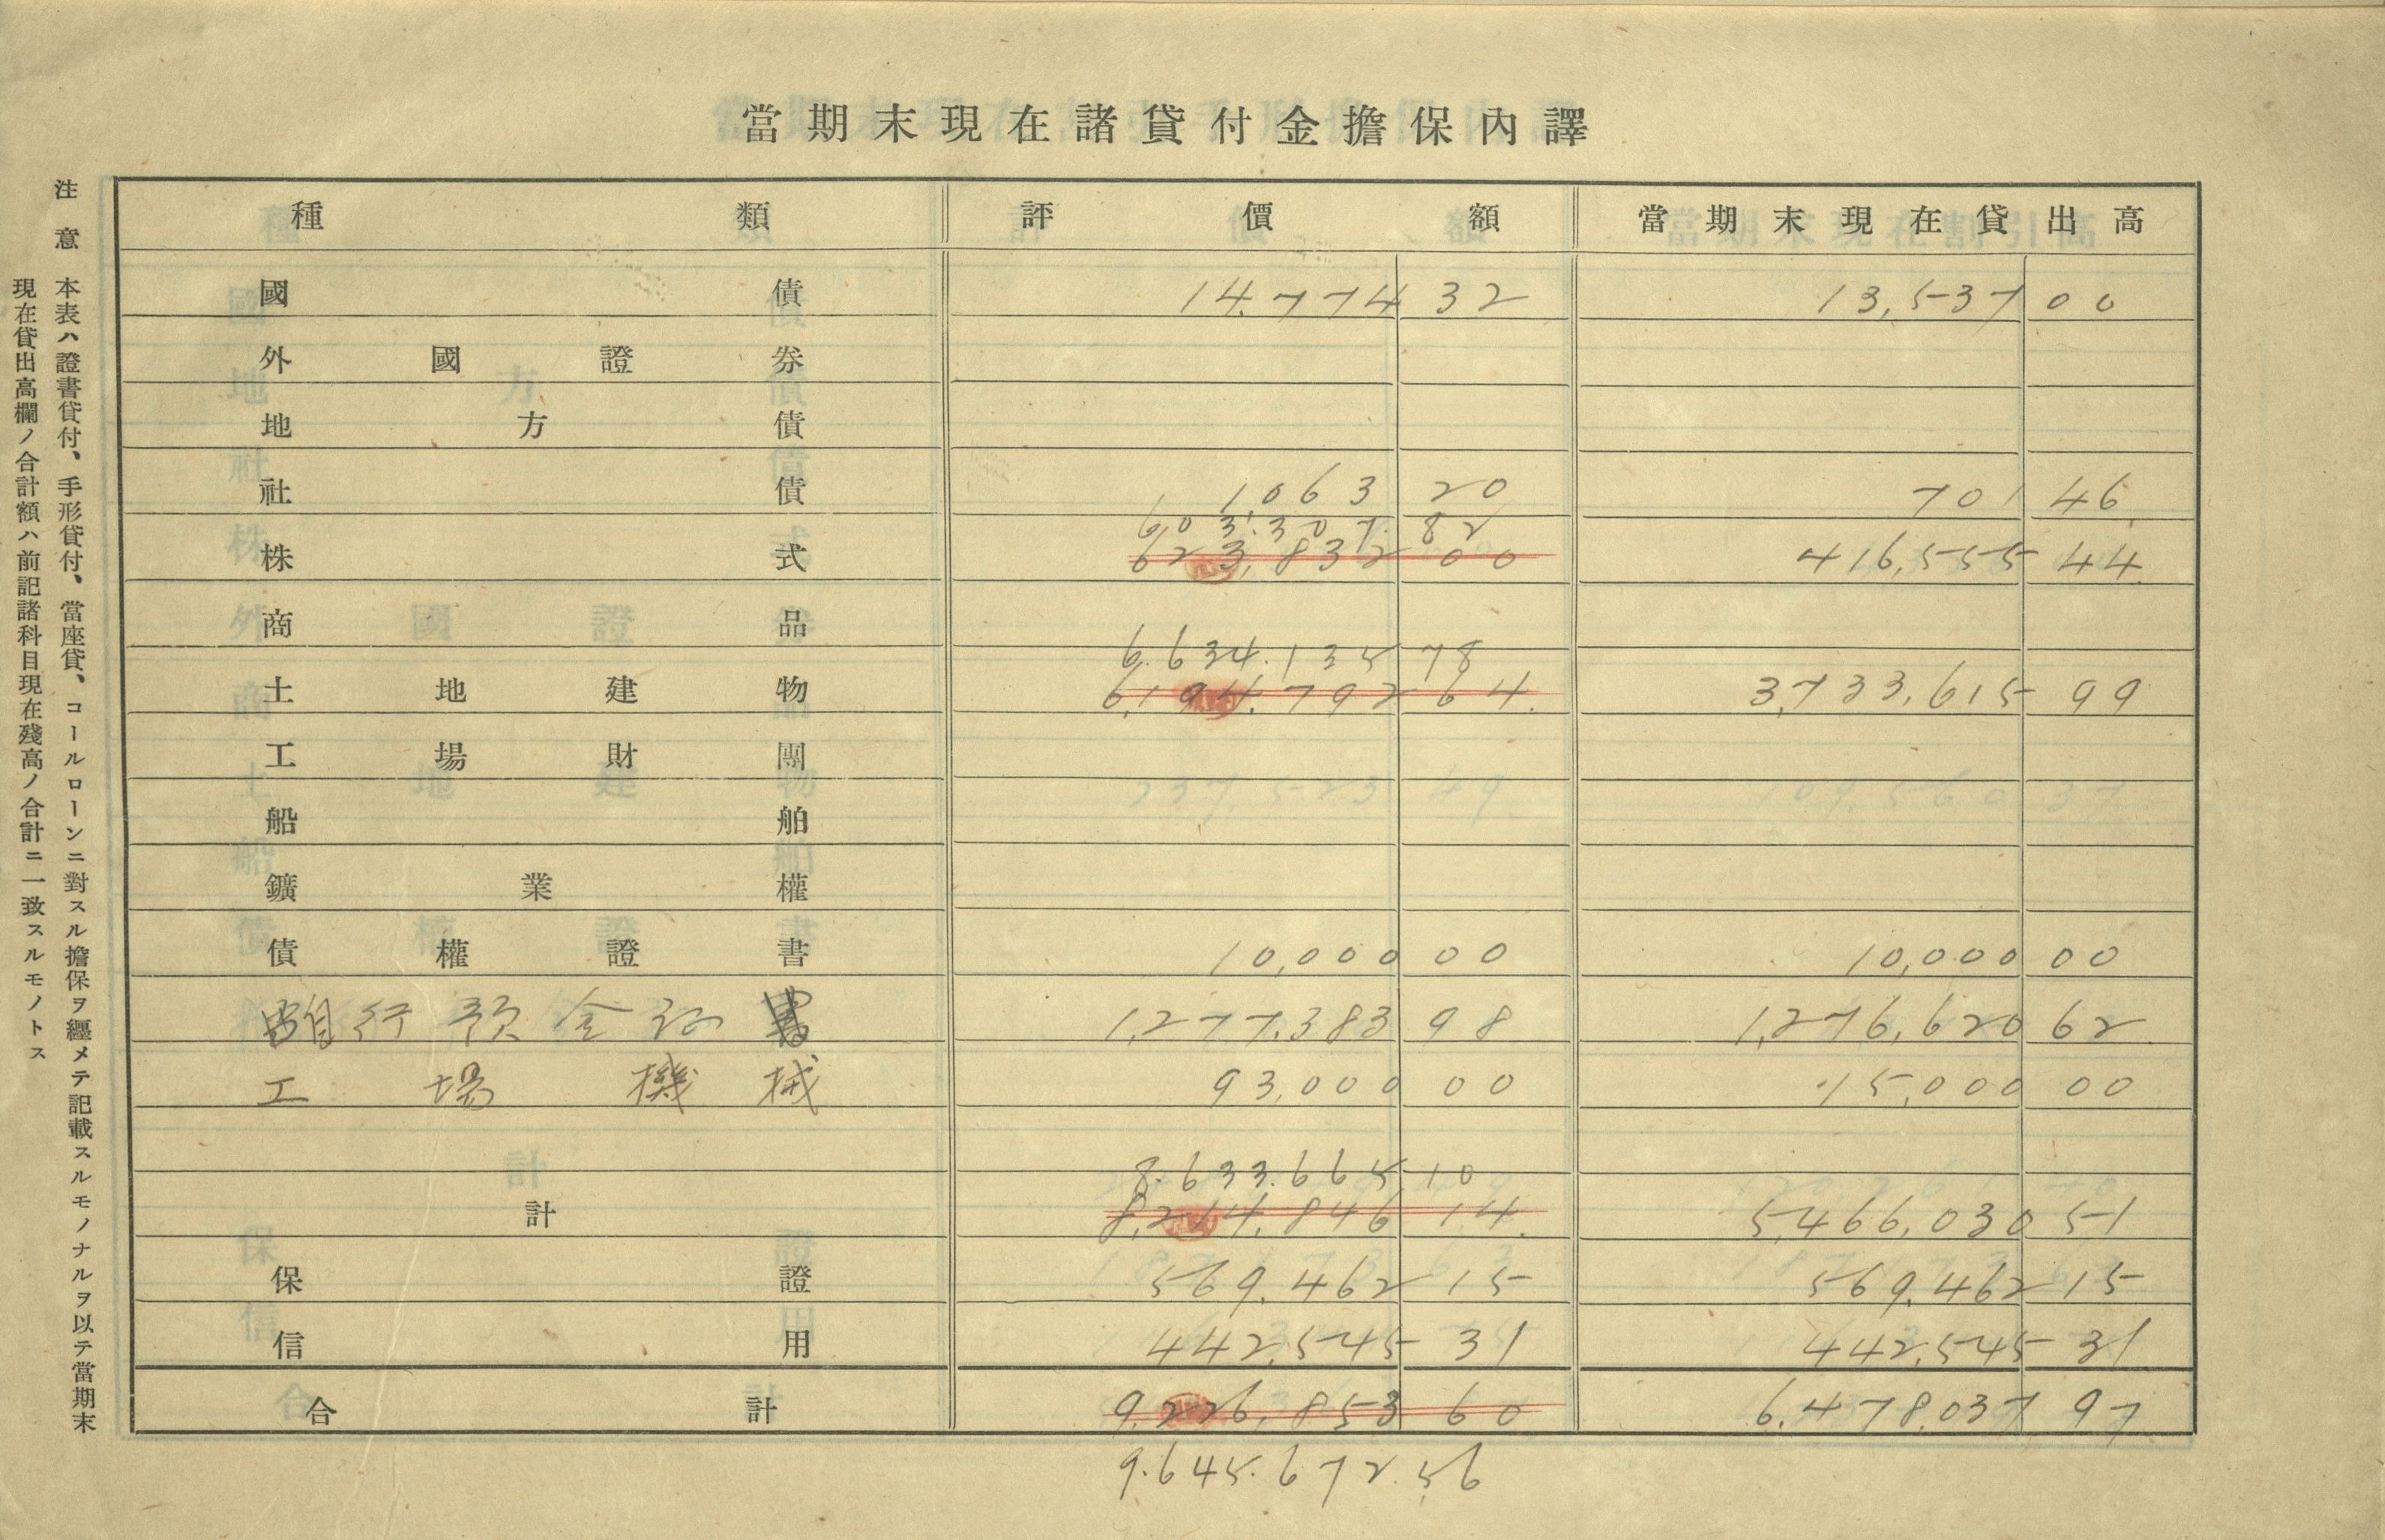 當期末現在諸貸付金擔保內譯
種類 評價額 當期末現在貸出高
國債 14.774 32 13,537 00
外國證券
地方債
社債 1,063 20 701 46
603.307. 82
株式 623,832 00 416,555 44
商品
6.634.135 78
土地建物 6,194,792 64 3,733,615 99
工場財團
船舶
鑛業權
債權證書 10,000 00 10,000 00
行預金証書 1,277,383 98 1,276,620 62
工場機械 93,000 00 15,000 00
8.633.665 10
計 8,214,846 14 5,466,030 51
保證 569,462 15 569,462 15
信用 442,545 31 442,545 31
合計 9,226,853 60 6,478,037 97
9.645.672.56
注意 本表ハ證書貸付、手形貸付、當座貸、コールローンニ對スル擔保ヲ纒メテ記載スルモノナルヲ以テ當期末
現在貸出高欄ノ合計額ハ前記諸科目現在殘高ノ合計ニ一致スルモノトス